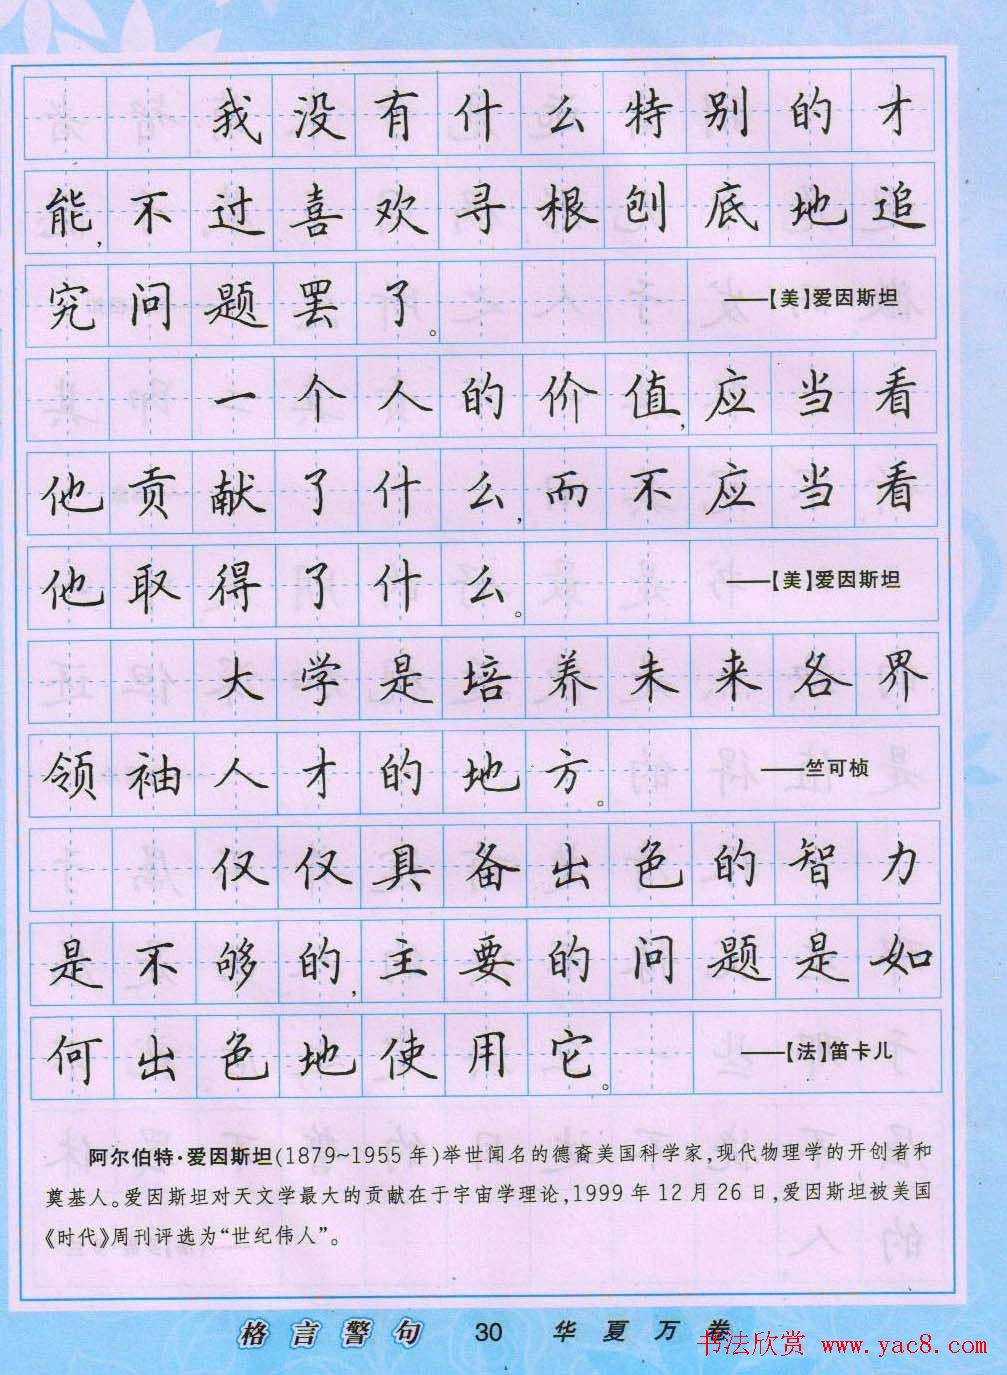 我没有什么特别的才
能,不过喜欢寻根刨底地追
究问题罢了。 ——【美】爱因斯坦
一个人的价值,应当看
他贡献了什么,而不应当看
他取得了什么。 ——【美】爱因斯坦
大学是培养未来各界
领袖人才的地方。 ——竺可桢
仅仅具备出色的智力
是不够的,主要的问题是如
何出色地使用它。 ——【法】笛卡儿
阿尔伯特·爱因斯坦(1879~1955年)举世闻名的德裔美国科学家,现代物理学的开创者和
奠基人。爱因斯坦对天文学最大的贡献在于宇宙学理论,1999年12月26日,爱因斯坦被美国
《时代》周刊评选为“世纪伟人”。
格言警句 30 华夏万卷
书法欣赏 www.yac8.com